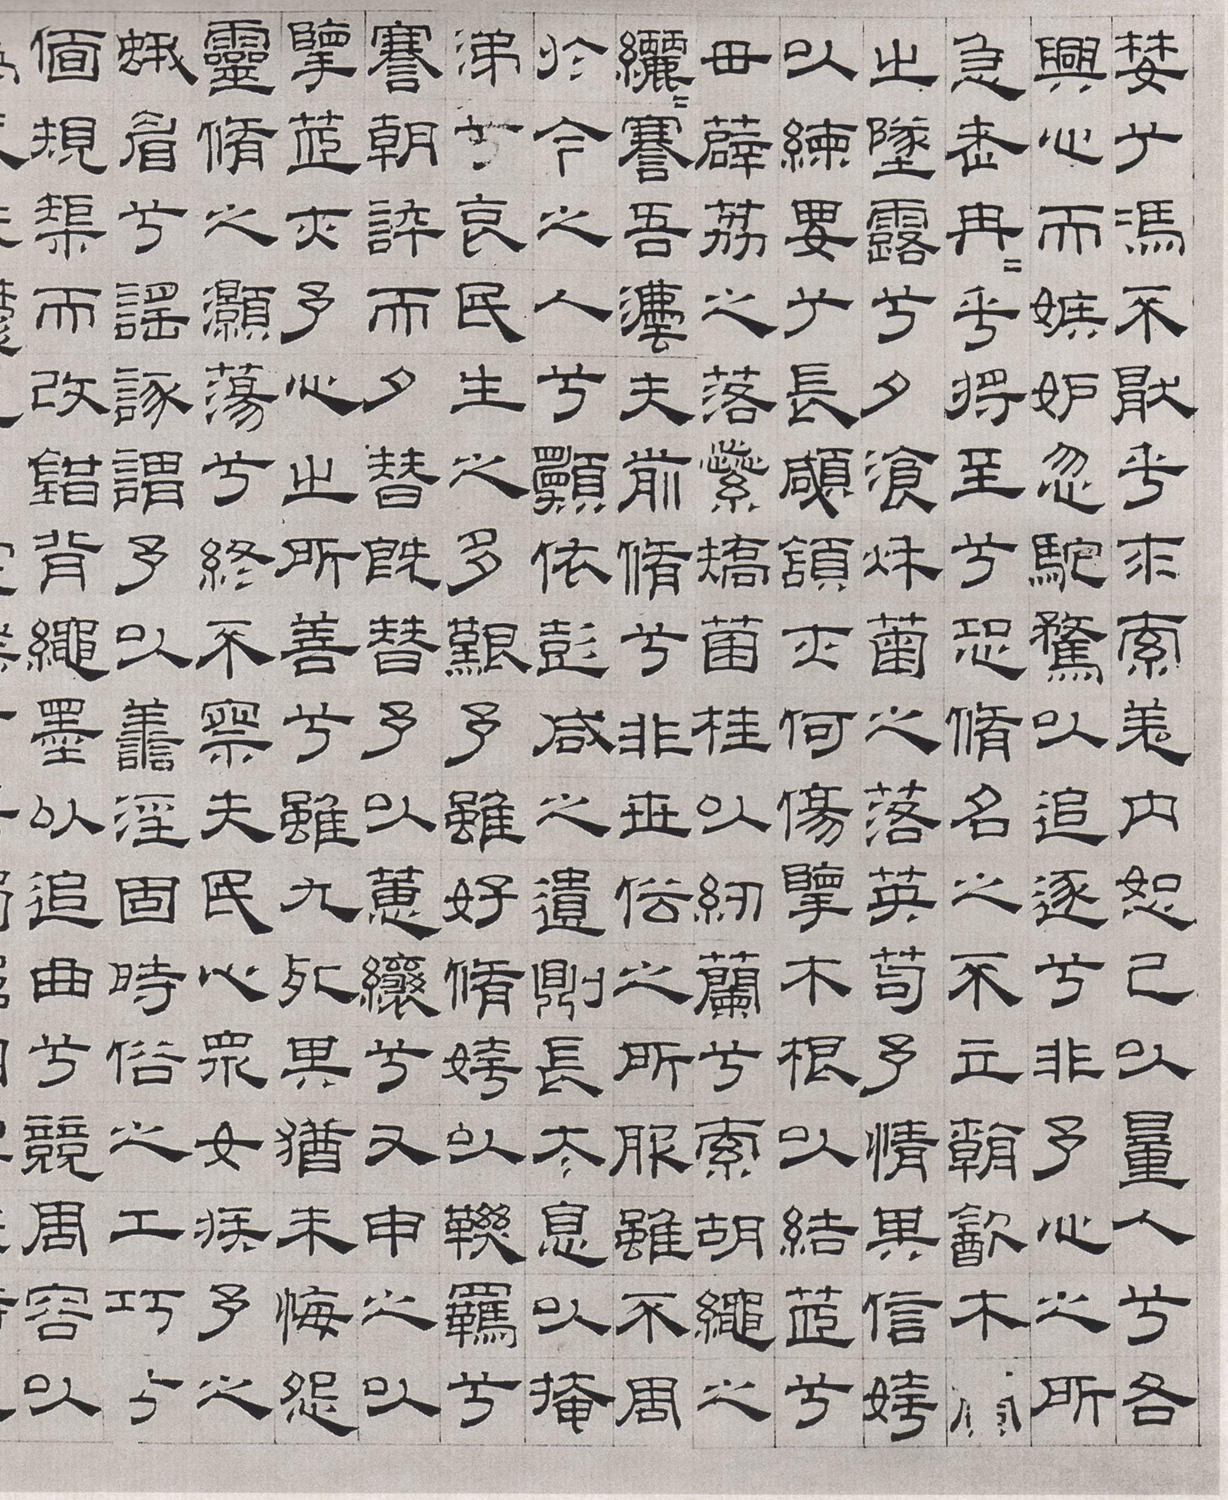 婪兮馮不猒乎求索羌内恕己以量人兮各
興心而嫉妒忽馳騖以追逐兮非予心之所
急老冉=乎將至兮恐脩名之不立朝㱃木
之墜露兮夕湌秋菊之落英苟予情其信姱
以練要兮長顑頷亦何傷擥木根以結茝兮
毌薜荔之落蘂矯菌桂以紉蘭兮索胡繩之
纚=謇吾灋夫前脩兮非世俗之所服雖不周
於今之人兮顠依彭咸之遺則長太息以掩
涕兮哀民生之多艱予雖好脩姱以鞿羈兮
謇朝誶而夕替既替予以蕙纕兮又申之以
擥茝亦予心之所善兮雖九死其猶未悔怨
靈脩之灝蕩兮終不察夫民心眾女疾予之
蛾眉兮謠諑謂予以譱淫固時俗之工巧兮
偭規榘而改錯背繩墨以追曲兮競周容以